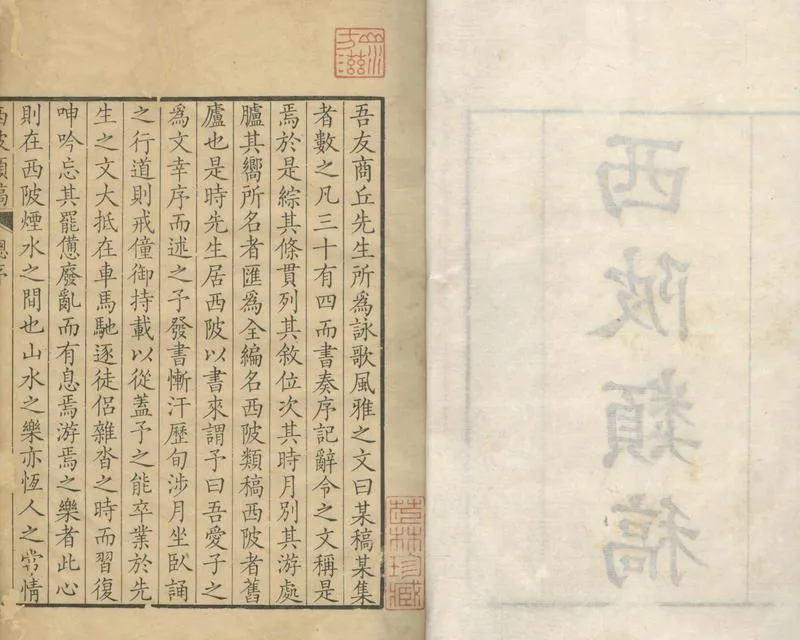 西陂類稿
吾友商丘先生所為詠歌風雅之文曰某稿某集
者數之凡三十有四而書奏序記辭令之文稱是
焉於是綜其條貫列其敘位次其時月別其游處
臚其嚮所名者匯為全編名西陂類稿西陂者舊
廬也是時先生居西陂以書來謂予曰吾愛子之
為文幸序而述之予發書慚汗歷旬涉月坐臥誦
之行道則戒僮御持載以從蓋予之能卒業於先
生之文大抵在車馬馳逐徒侶雜沓之時而習復
呻吟忘其罷憊廢亂而有息焉游焉之樂者此心
則在西陂煙水之間也山水之樂亦恆人之常情
西陂類稿
總序
林珍藏